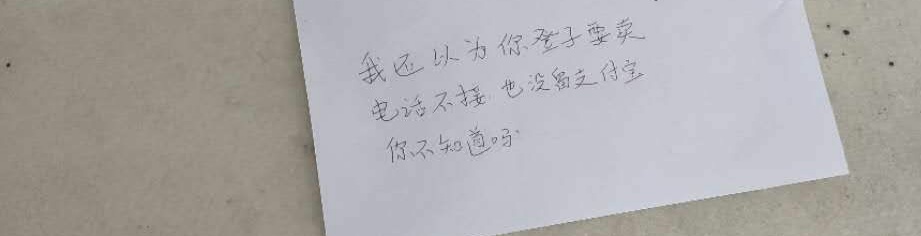 我还以为你登子要卖
电话不接 也没留支付宝
你不知道吗